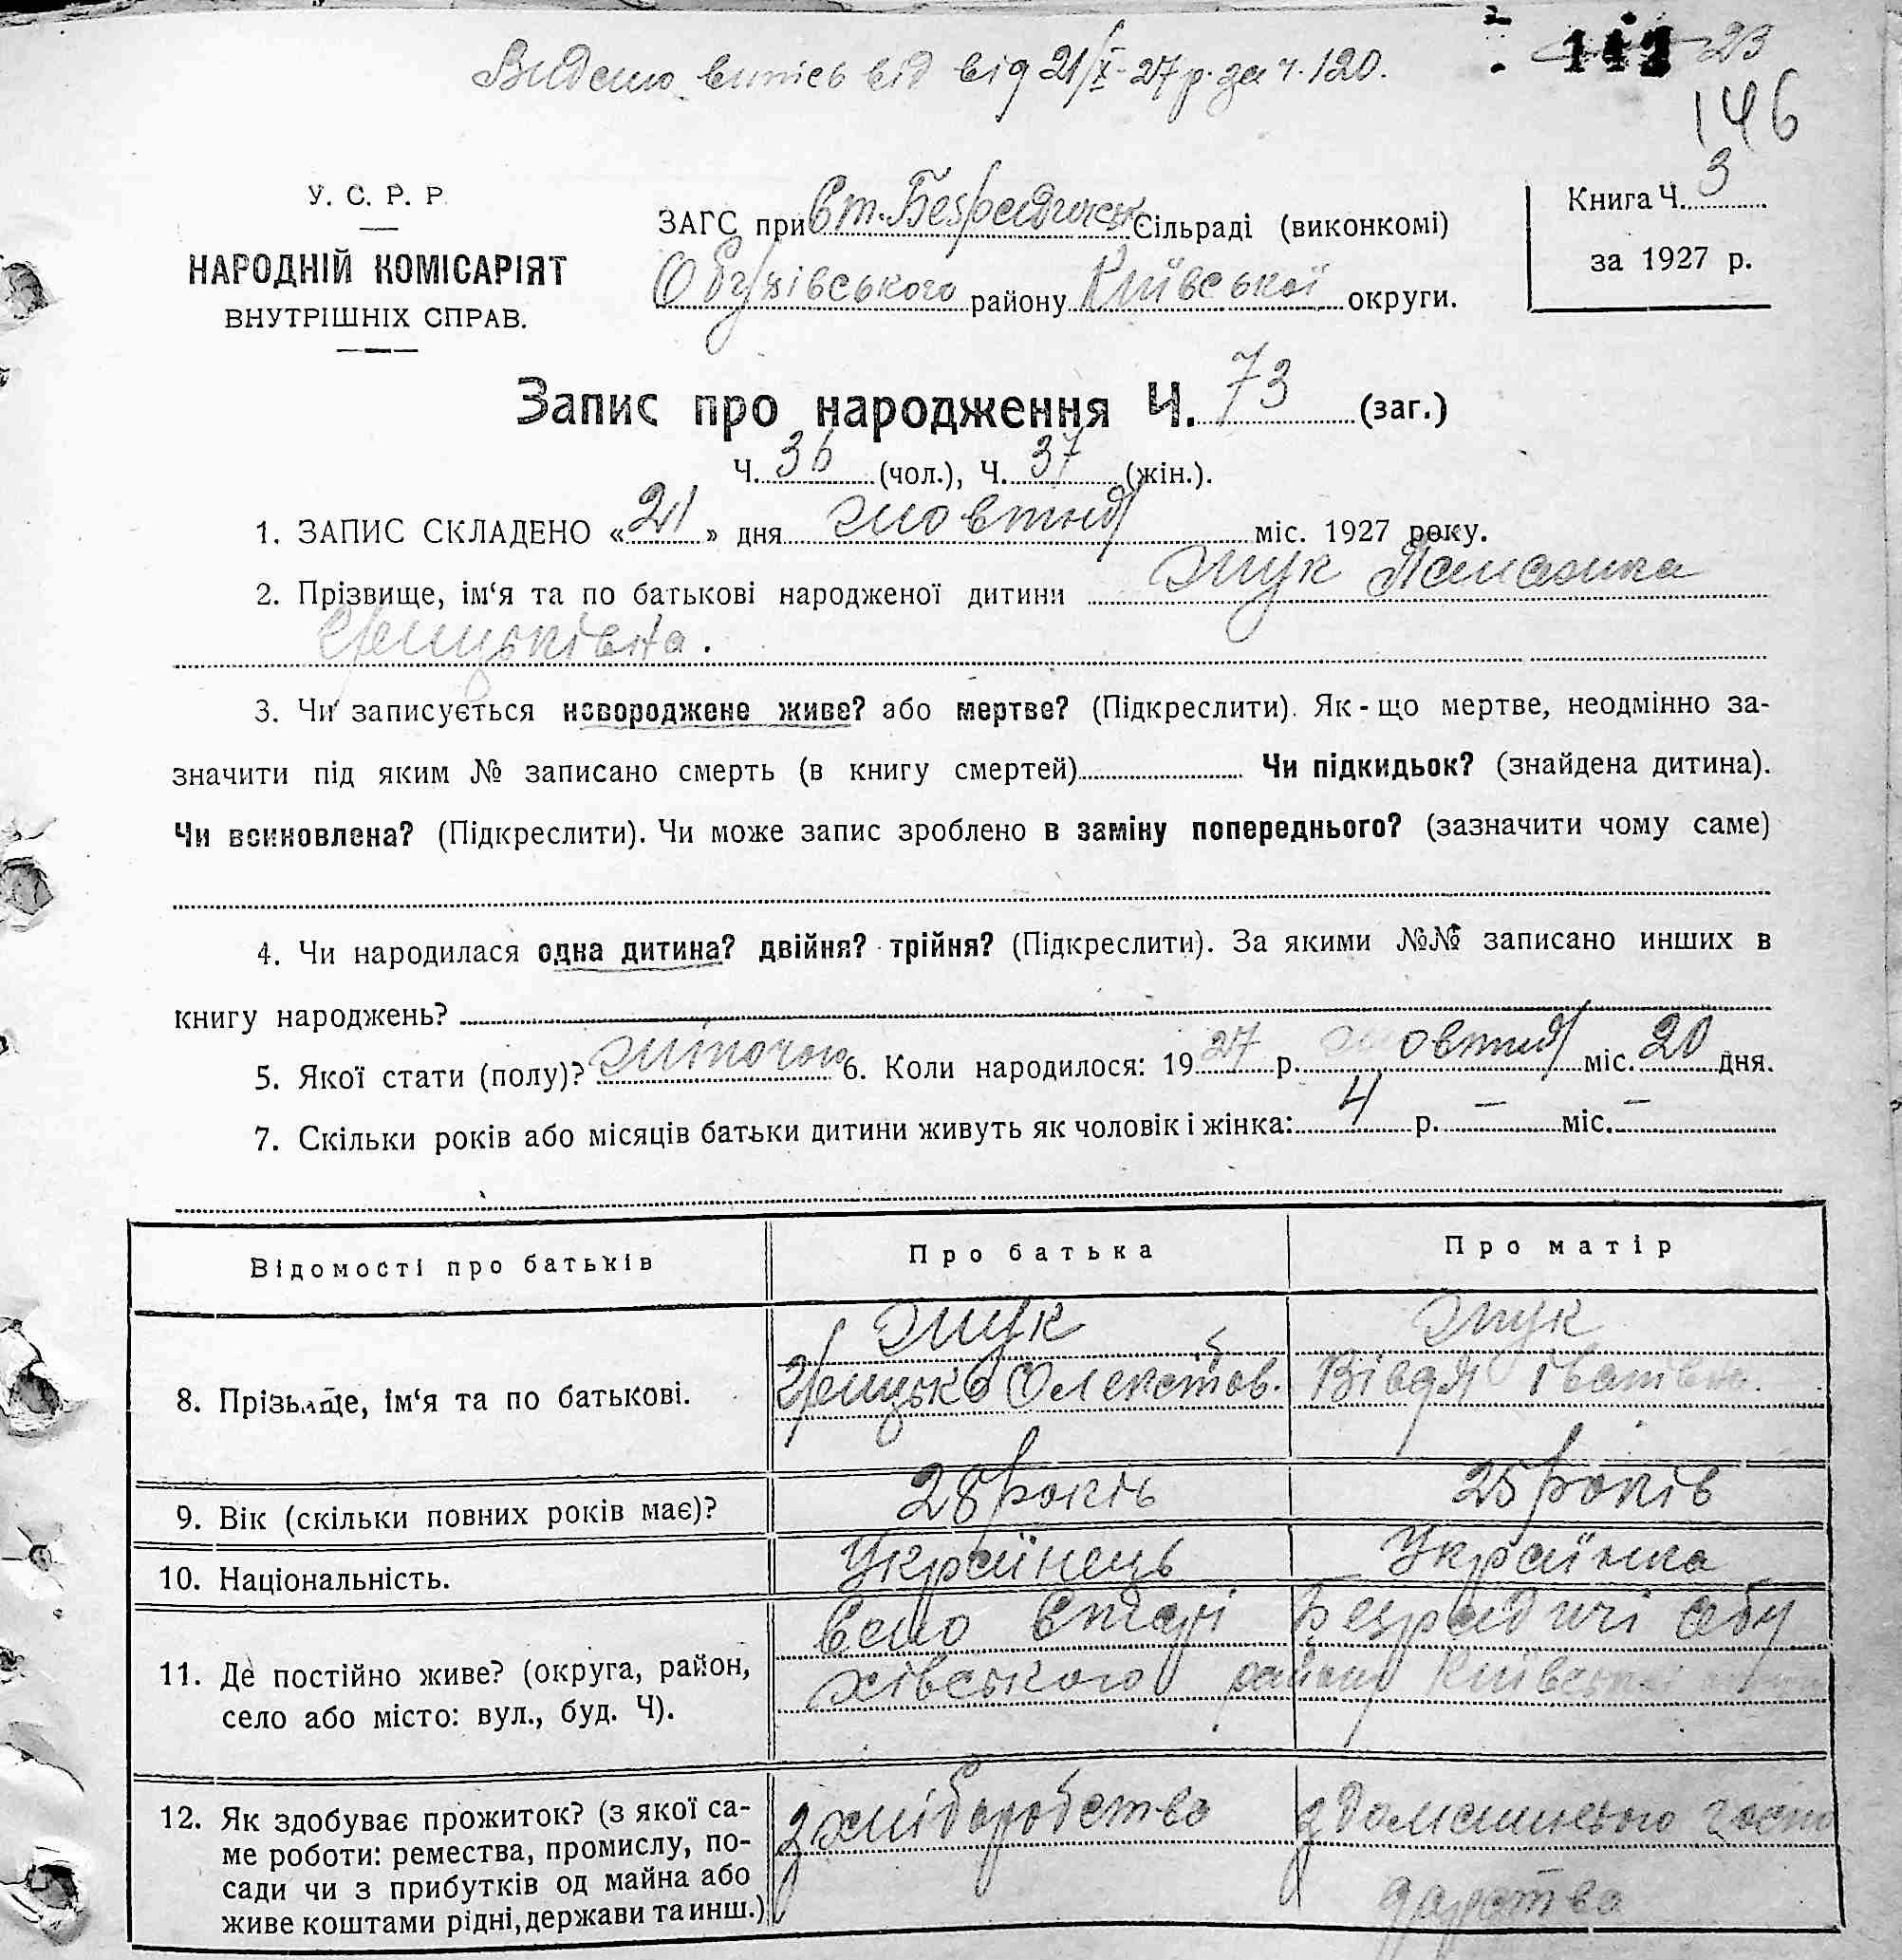 Видано випись від від 21/X-27 р. за ч. 120.
23
146
У. С. Р. Р.
НАРОДНІЙ КОМІСАРІЯТ
ВНУТРІШНІХ СПРАВ.
ЗАГС при Ст. Безрадицьк Сільраді (виконкомі)
Обухівського району Київської округи.
Книга Ч. 3
за 1927 р.
Запис про народження Ч. 73 (заг.)
Ч. 36 (чол.), Ч. 37 (жін.).
1. ЗАПИС СКЛАДЕНО «21» дня жовтня міс. 1927 року.
2. Прізвище, ім‘я та по батькові народженої дитини Жук Палажка
Грицьківна.
3. Чи записується новороджене живе? або мертве? (Підкреслити). Як-що мертве, неодмінно за-
значити під яким № записано смерть (в книгу смертей) Чи підкидьок? (знайдена дитина).
Чи всиновлена? (Підкреслити). Чи може запис зроблено в заміну попереднього? (зазначити чому саме)
4. Чи народилася одна дитина? двійня? трійня? (Підкреслити). За якими №№ записано инших в
книгу народжень?
5. Якої стати (полу)? жіночою 6. Коли народилося: 1927 р. жовтня міс. 20 дня.
7. Скільки років або місяців батьки дитини живуть як чоловік і жінка: 4 р. — міс. —
Відомості про батьків Про батька Про матір
Жук Жук
8. Прізвище, ім‘я та по батькові. Грицько Олексіїов. Вівдя Іванівна.
9. Вік (скільки повних років має)? 28 років 25 років
10. Національність. Українець Українка
Село Старі Безрадичі Обу
11. Де постійно живе? (округа, район, хівського району Київської
село або місто: вул., буд. Ч).
12. Як здобуває прожиток? (з якої са- з хліборобства з домашнього госпо
ме роботи: ремества, промислу, по-
сади чи з прибутків од майна або дарства
живе коштами рідні, держави та инш.)